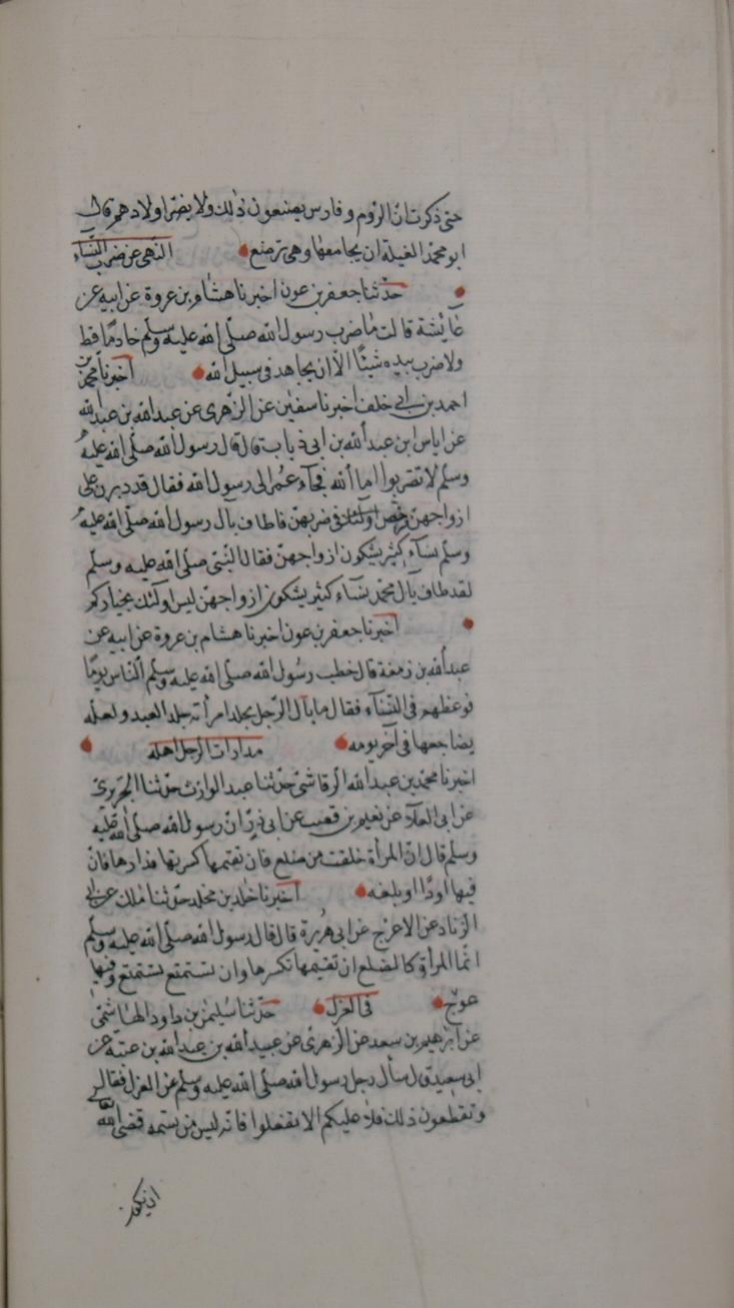 حتى ذكرت ان الروم وفارس يصنعون ذلك ولا يضر اولادهم قال
ابو محمد الغيلة ان يجامعها وهي ترضع النهي عن ضرب النساء
حدثنا جعفر بن عون اخبرنا هشام بن عروة عن ابيه عن
عائشة قالت ما ضرب رسول الله صلى الله عليه وسلم خادما قط
ولا ضرب بيده شيئا الا ان يجاهد في سبيل الله اخبرنا محمد بن
احمد بن ابي خلف اخبرنا سفين عن الزهري عن عبد الله بن عبد الله
عن اياس ابن عبد الله بن ابي ذباب قال قال رسول الله صلى الله عليه
وسلم لا تضربوا اماء الله فجاء عمر الى رسول الله فقال قد ديرن على
ازواجهن فرخص في ضربهن فاطاف بآل رسول الله صلى الله عليه
وسلم نساء كثير يشكون ازواجهن فقال النبي صلى الله عليه وسلم
لقد طاف بآل محمد نساء كثير يشكون ازواجهن ليس اولئك بخياركم
اخبرنا جعفر بن عون اخبرنا هشام بن عروة عن ابيه عن
عبد الله بن زمعة قال خطب رسول الله صلى الله عليه وسلم الناس يوما
فوعظهم في النساء فقال ما بال الرجل يجلد امرأته جلد العبد ولعله
يضاجعها في آخر يومه مدارات الرجل اهله
اخبرنا محمد بن عبد الله الرقاشي حدثنا عبد الوارث حدثنا الجريري
عن ابي العلاء عن نعيم بن قعنب عن ابي ذر ان رسول الله صلى الله عليه
وسلم قال ان المرأة خلقت من ضلع فان تقمها كسرتها فدارها فان
فيها اودا وبلغه اخبرنا خالد بن مخلد حدثنا ملك عن ابي
الزناد عن الاعرج عن ابي هريرة قال قال رسول الله صلى الله عليه وسلم
انما المرأة كالضلع ان تقيمها تكسرها وان تستمتع تستمتع وفيها
عوج في العزل حدثنا سليمن بن داود الهاشمي
عن ابرهيم بن سعد عن الزهري عن عبيد الله بن عبد الله بن عتبة عن
ابي سعيد قال سأل رجل رسول الله صلى الله عليه وسلم عن العزل فقال
وتفعلون ذلك فلا عليكم الا تفعلوا فانه ليس من نسمة قضى الله
ان تكون